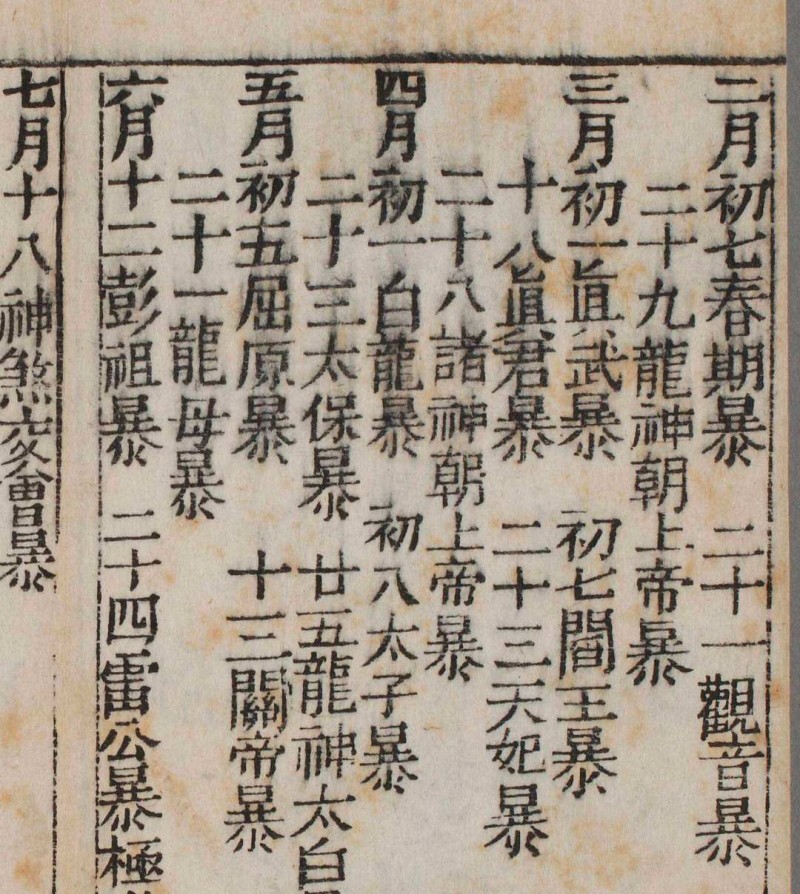 二月初七春期暴 二十一觀音暴
二十九龍神朝上帝暴
三月初一眞武暴 初七閻王暴
十八眞君暴 二十三天妃暴
二十八諸神朝上帝暴
四月初一白龍暴 初八太子暴
二十三太保暴 廿五龍神太白
五月初五屈原暴 十三關帝暴
二十一龍母暴
六月十二彭祖暴 二十四雷公暴極
七月十八神煞交會暴